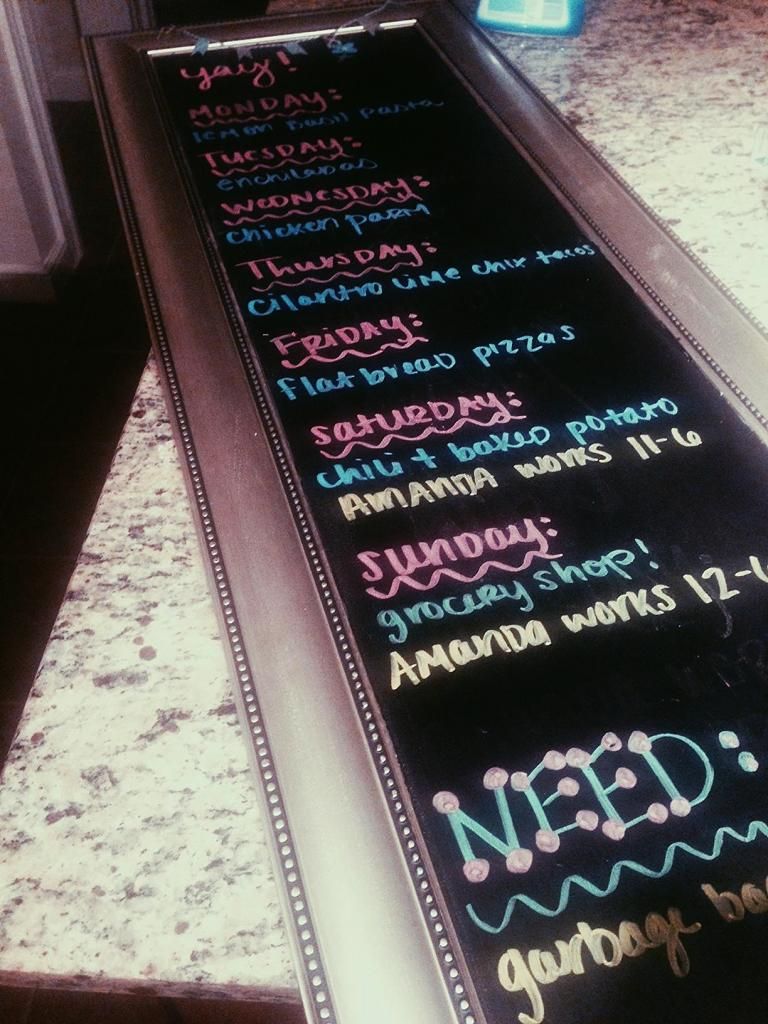 yay!
MONDAY:
lemon Basil pasta
TUESDAY:
enchiladas
WEDNESDAY:
chicken parm
THURSDAY:
cilantro lime chix tacos
FRIDAY:
flat bread pizzas
SATURDAY:
chili + baked potato
AMANDA works 11-6
SUNDAY:
grocery shop!
AManda works 12-6
NEED:
garbage